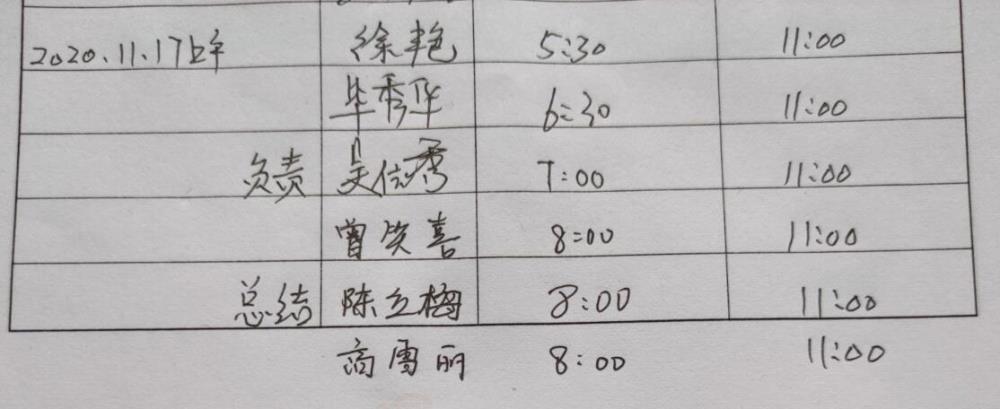 2020.11.17上午 徐艳 5:30 11:00
毕秀华 6:30 11:00
负责 吴信秀 7:00 11:00
曾笑喜 8:00 11:00
总结 陈立梅 8:00 11:00
商雪丽 8:00 11:00